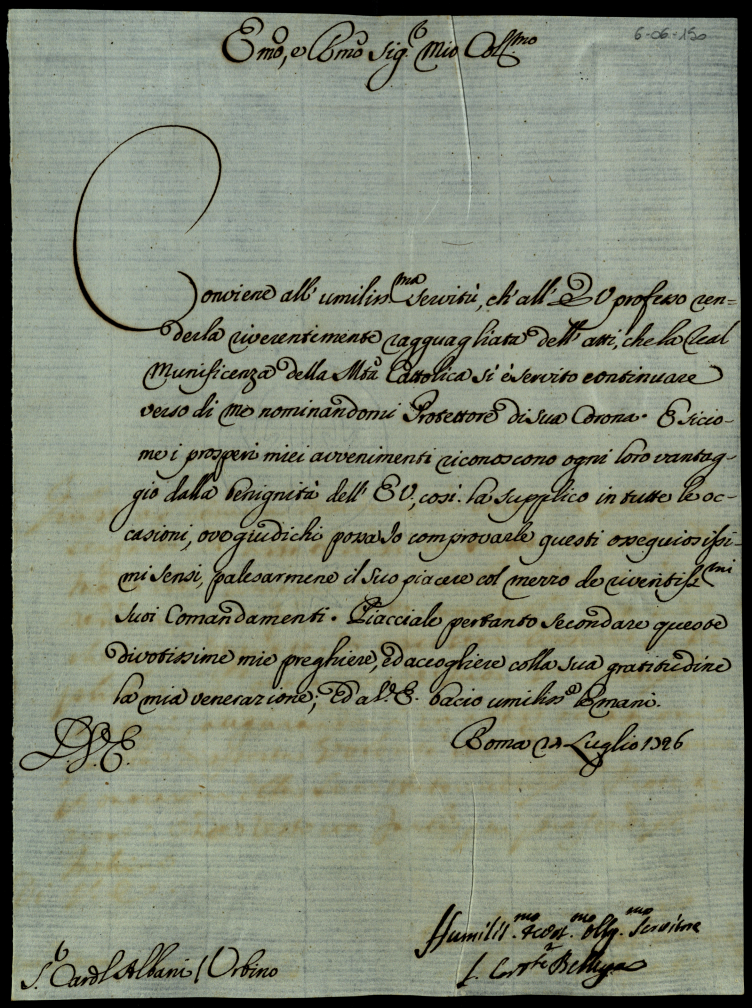 6-06-150
Emo, e Rmo Sig.r Mio Coll.mo
Conviene all' umiliss.ma servitù, ch' all' E V professo ren=
derla riverentemente ragguagliata dell' atti, che la Real
Munificenza della Mtà Cattolica si è servito continuare
verso di me nominandomi Protettore di sua Corona. E sicio-
me i prosperi miei avvenimenti riconoscono ogni loro vantag-
gio dalla benignità dell' E V, così la supplico in tutte le oc-
casioni, ove giudichi possa Io comprovarle questi ossequiosissi-
mi sensi, palesarmene il suo piacere col mezzo de riveritiss.mi
suoi Comandamenti. Piacciale pertanto secondare queste
divotissime mie preghiere, ed accogliere colla sua gratitudine
la mia venerazione; Ed a V. E. bacio umiliss.e le mani.
D. V. E. Roma Luglio 1726
Humiliss.mo
S.r Card.l Albani / Urbino L. Belluga